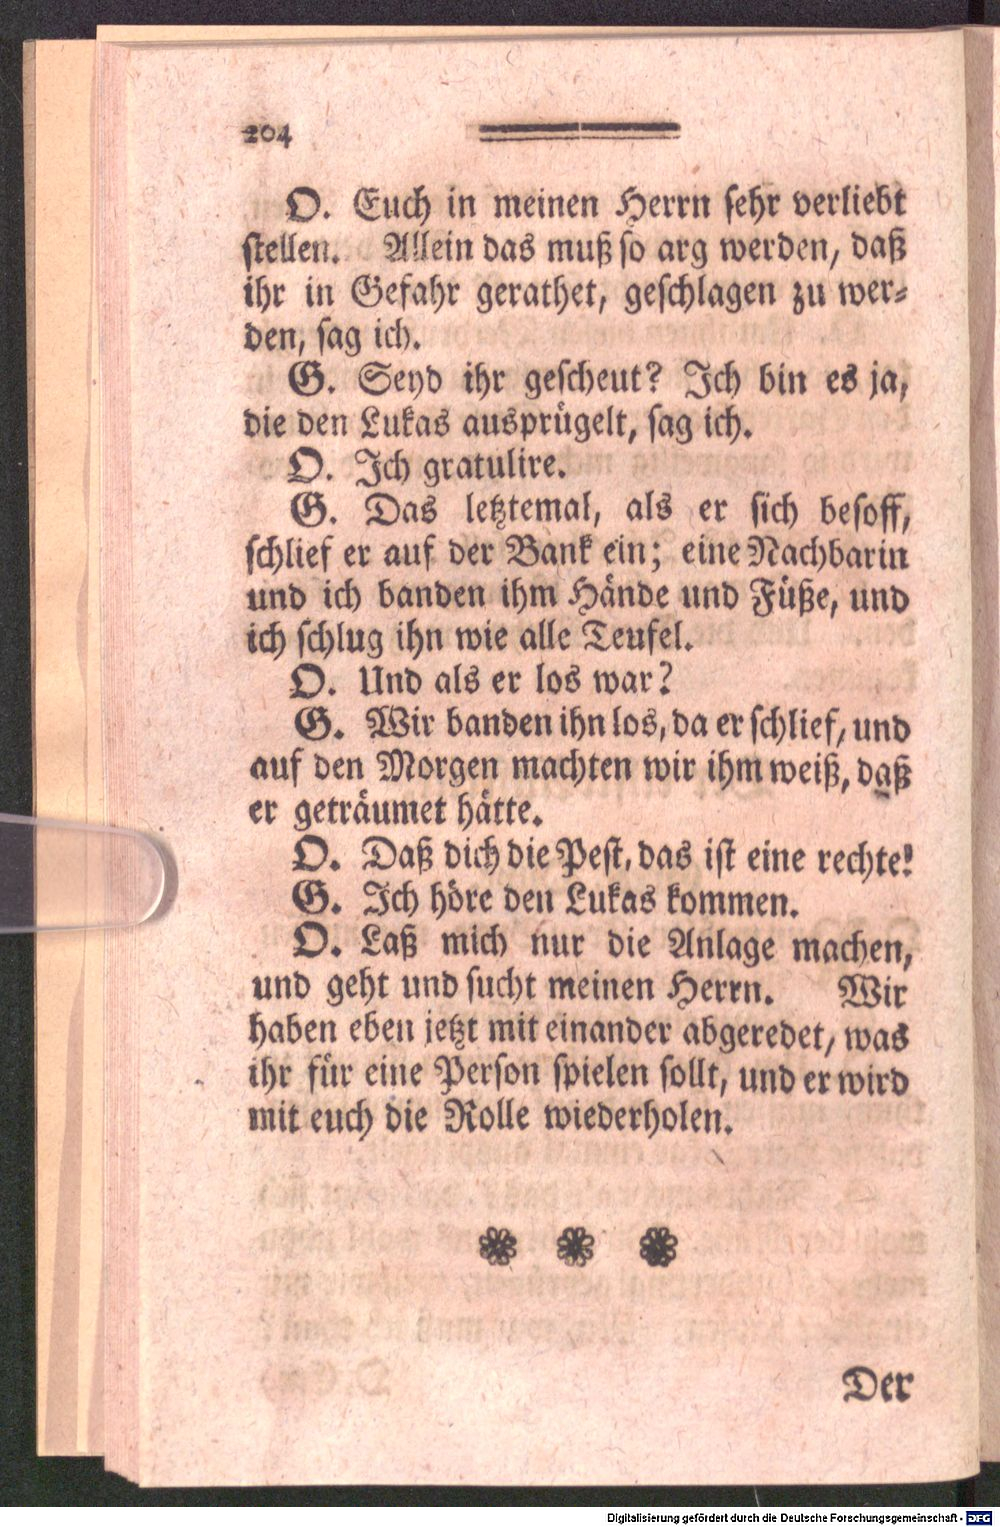 204
O. Euch in meinen Herrn sehr verliebt
stellen. Allein das muß so arg werden, daß
ihr in Gefahr gerathet, geschlagen zu wer-
den, sag ich.
G. Seyd ihr gescheut? Ich bin es ja,
die den Lukas ausprügelt, sag ich.
O. Ich gratulire.
G. Das letztemal, als er sich besoff,
schlief er auf der Bank ein; eine Nachbarin
und ich banden ihm Hände und Füße, und
ich schlug ihn wie alle Teufel.
O. Und als er los war?
G. Wir banden ihn los, da er schlief, und
auf den Morgen machten wir ihm weiß, daß
er geträumet hätte.
O. Daß dich die Pest, das ist eine rechte!
G. Ich höre den Lukas kommen.
O. Laß mich nur die Anlage machen,
und geht und sucht meinen Herrn. Wir
haben eben jetzt mit einander abgeredet, was
ihr für eine Person spielen sollt, und er wird
mit euch die Rolle wiederholen.
Der
Digitalisierung gefördert durch die Deutsche Forschungsgemeinschaft - DFG